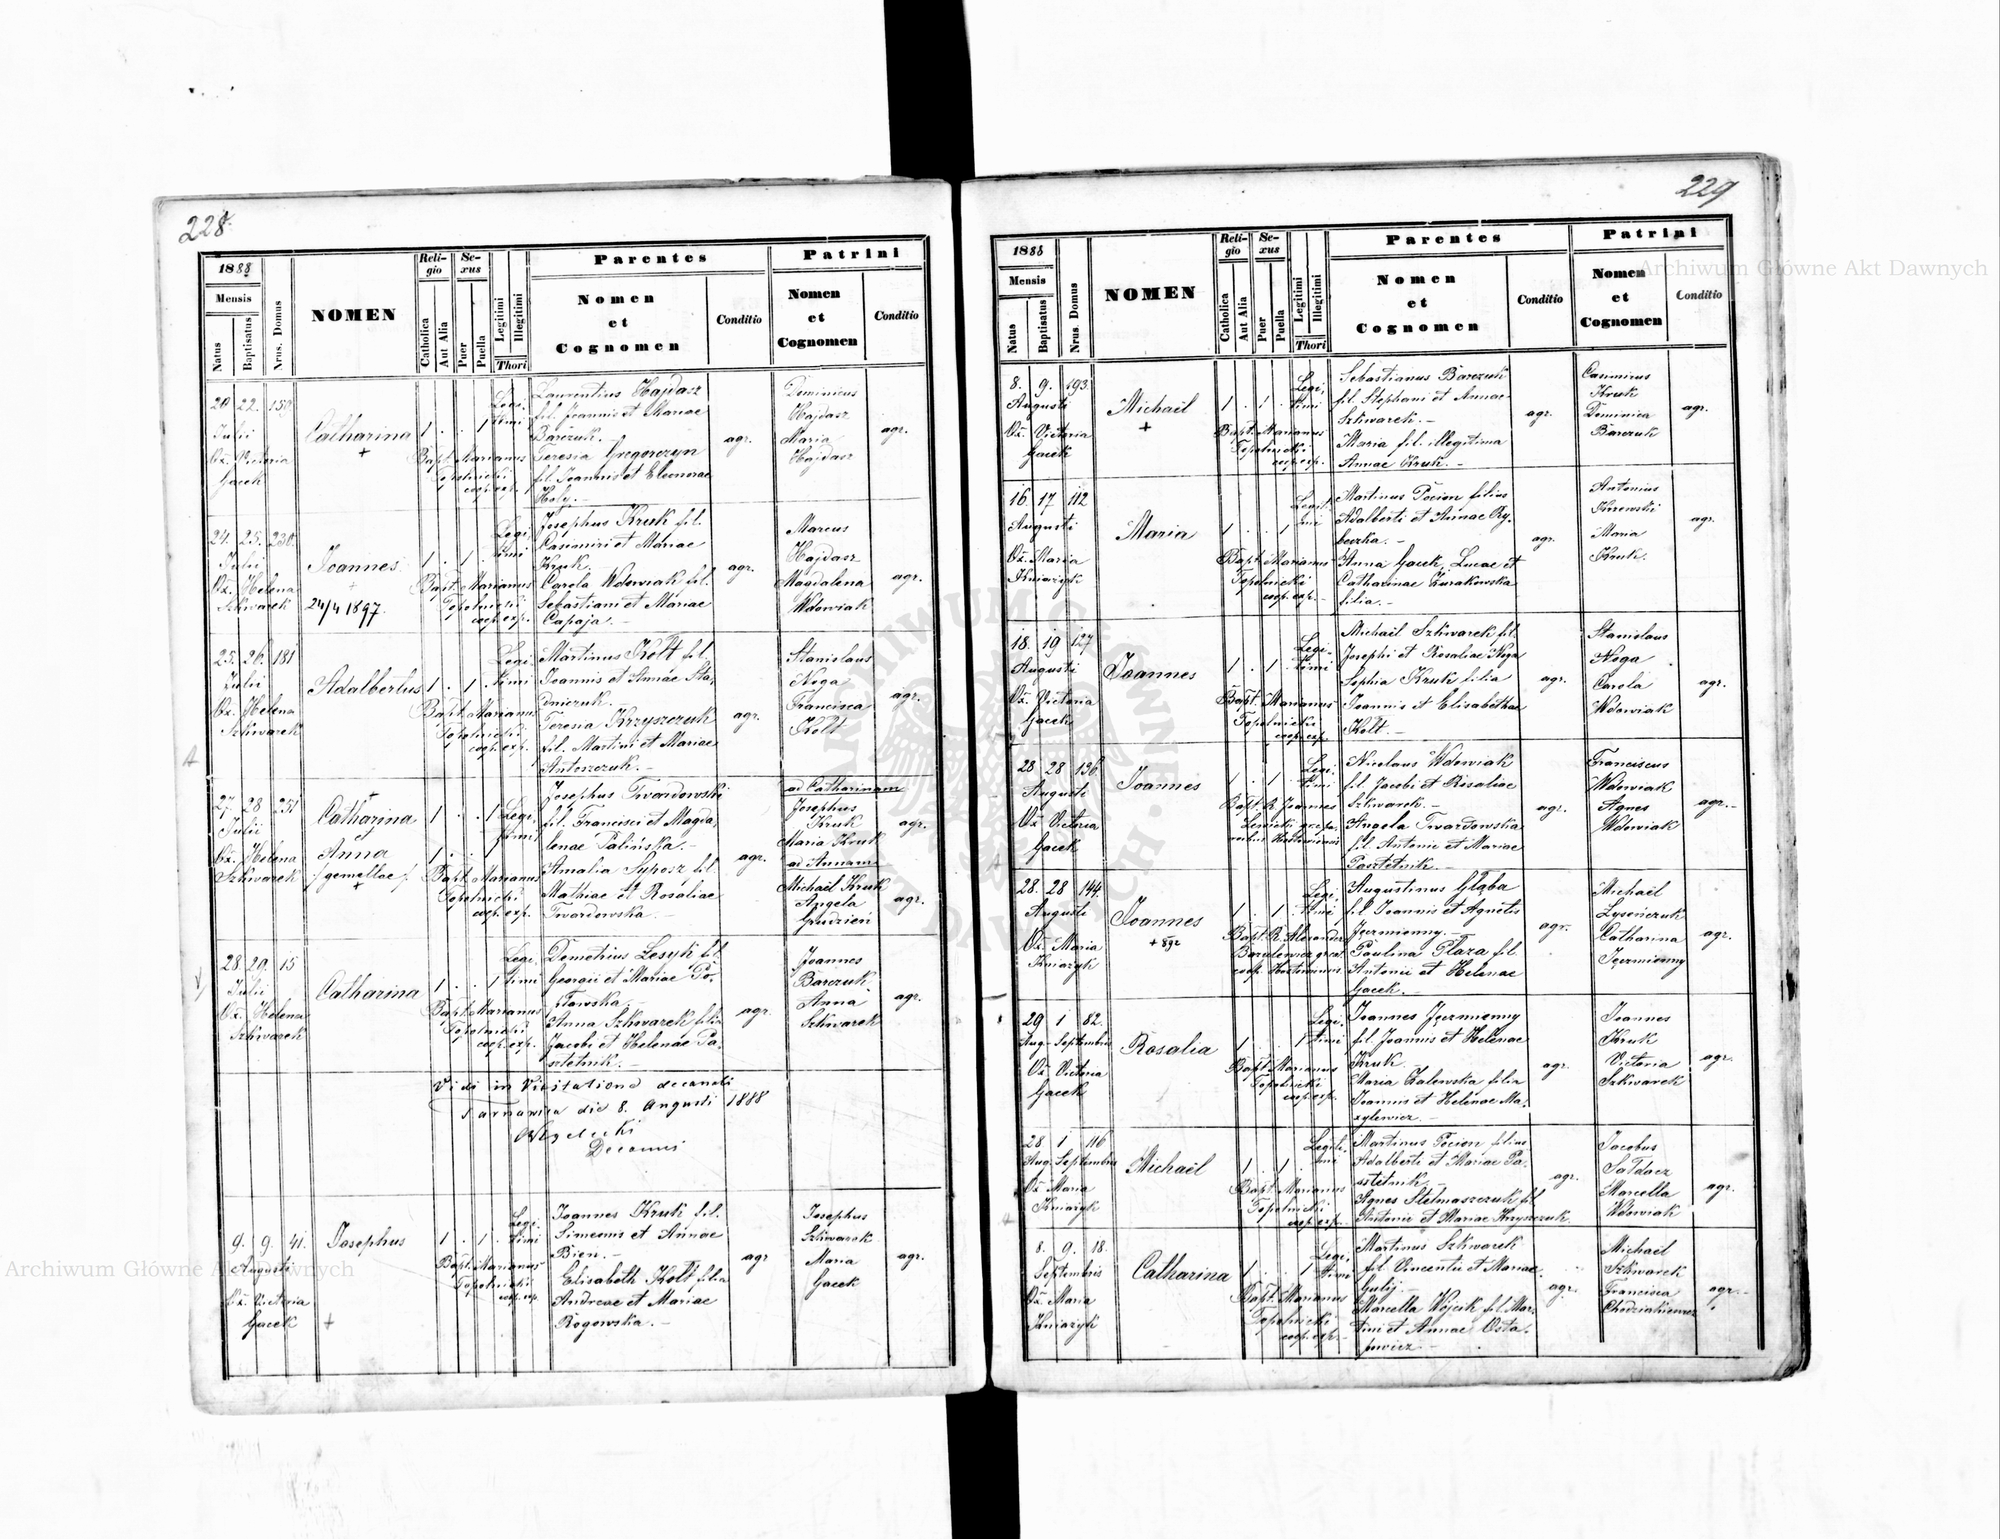 228
1888
Mensis
Natus
Baptisatus
Nrus. Domus
NOMEN
Religio
Catholica
Aut Alia
Sexus
Puer
Puella
Legitimi
Illegitimi
Thori
Parentes
Nomen
et
Cognomen
Conditio
Patrini
Nomen
et
Cognomen
Conditio
20 22. 150
Julii
Oż. Victoria
Gacek
Catharina
+
1 . . 1
Legi
timi
Bapt. Marianus
Topolnicki
coop. exp.
Laurentius Hajdasz
fil. Joannis et Mariae
Barczuk. -
Teresia Gregorczyn
fil. Joannis et Eleonorae
Holy. -
agr.
Dominicus
Hajdasz
Maria
Hajdasz
agr.
24. 25. 230.
Julii
Oż. Helena
Szkwarek
Joannes
24/4 1897.
1 . 1 .
Legi
timi
Bapt. Marianus
Topolnicki
coop. exp.
Josephus Kruk fil.
Casimiri et Mariae
Kruk.
Carola Wdowiak fil.
Sebastiani et Mariae
Capaja. -
agr.
Marcus
Hajdasz
Magdalena
Wdowiak
agr.
25. 26. 181
Julii
Oż. Helena
Szkwarek
Adalbertus
1 . 1 .
Legi
timi
Bapt. Marianus
Topolnicki
coop. exp.
Martinus Kolt fil.
Joannis et Annae Sta,
dniczuk. -
Teresa Krzyszczuk
fil. Martini et Mariae
Antoszczuk. -
agr.
Stanislaus
Noga
Francisca
Kolt
agr.
27. 28 251
Julii
Oż. Helena
Szkwarek
Catharina
et
Anna
/gemellae/
+
1 . . 1
1 . . 1
Legi
timi
Bapt. Marianus
Topolnicki
coop. exp.
Josephus Twardowski
fil. Francisci et Magda,
lenae Palińska. -
Amalia Syposz fil.
Mathiae et Rosaliae
Twardowska. -
agr.
ad Catharinam
Josephus
Kruk
Maria Kruk
ad Annam
Michaël Kruk
Angela
Grudzień
agr.
agr.
28. 29. 15
Julii
Oż. Helena
Szkwarek
Catharina
1 . . 1
Legi
timi
Bapt. Marianus
Topolnicki
coop. exp.
Demetrius Lesyk fil.
Georgii et Mariae Po,
sławska. -
Anna Szkwarek filia
Jacobi et Helenae Pa,
sztetnik. -
agr.
Joannes
Barczuk.
Anna
Szkwarek
agr.
Vidi in Visitatione decanali
Tarnawica die 8. Augusti 1888
Decanus
9. 9. 41.
Augusti
Oż. Victoria
Gacek
Josephus
+
1 . 1 .
Legi
timi
Bapt. Marianus
Topolnicki
coop. exp.
Joannes Kruk fil.
Simeonis et Annae
Bien. -
Elisabeth Kolt filia
Andreae et Mariae
Rogowska. -
agr
Josephus
Szkwarek
Maria
Gacek
agr.
229
1888
Mensis
Natus
Baptisatus
Nrus. Domus
NOMEN
Religio
Catholica
Aut Alia
Sexus
Puer
Puella
Legitimi
Illegitimi
Thori
Parentes
Nomen
et
Cognomen
Conditio
Patrini
Nomen
et
Cognomen
Conditio
8. 9. 193.
Augusti
Oż. Victoria
Gacek
Michaël
+
1 . 1 .
Legi,
timi
Bapt. Marianus
Topolnicki
coop. exp.
Sebastianus Barczuk
fil. Stephani et Annae
Szkwarek. -
Maria fil. illegitima
Annae Kruk. -
agr.
Casimirus
Kruk
Dominica
Barczuk
agr.
16 17 112
Augusti
Oż. Maria
Kniażyk
Maria
1 . . 1
Legit
timi
Bapt. Marianus
Topolnicki
coop. exp. -
Martinus Pocion filius
Adalberti et Annae Ry,
beczka. -
Anna Gacek, Lucae et
Catharinae Żurakowska
filia. -
agr.
Antonius
Maria
Kruk
agr.
18. 19 127
Augusti
Oż. Victoria
Gacek
Joannes
1 . 1 .
Legi-
timi
Bapt. Marianus
Topolnicki
coop. exp.
Michaël Szkwarek fil.
Josephi et Rosaliae Noga
Sophia Kruk filia
Joannis et Elisabethae
Kolt. -
agr.
Stanislaus
Noga
Carola
Wdowiak
agr.
28 28 136
Augusti
Oż Victoria
Gacek
Joannes
1 . 1 .
Legi
timi
Bapt. R. Joannes
Nicolaus Wdowiak
fil. Jacobi et Rosaliae
Szkwarek. -
Angela Twardowska
fil. Antonii et Mariae
Pasztetnik. -
agr.
Franciscus
Wdowiak
Agnes
Wdowiak
agr. -
28. 28 144.
Augusti
Oż. Maria
Kniażyk
Joannes
1 . 1 .
Legi
timi
Bapt. R. Alexander
Augustinus Głąba
fil Joannis et Agnetis
Jęczmionny. -
Paulina Płaza fil.
Antonii et Helenae
Gacek. -
agr.
Michaël
Łysończuk
Catharina
Jęczmionny
agr.
29 1 82.
Aug. Septembris
Oż. Victoria
Gacek
Rosalia
1 . . 1
Legi.
timi
Bapt. Marianus
Topolnicki
coop. exp.
Joannes Jęczmionny
fil. Joannis et Helenae
Kruk
Maria Zalewska filia
Joannis et Helenae Ma,
zylewicz. -
agr.
Joannes
Kruk
Victoria
Szkwarek
agr.
28 1 116
Aug. Septembris
Oż Maria
Kniażyk
Michaël
1 . 1 .
Legiti,
mi
Bapt. Marianus
Topolnicki
coop. exp. -
Martinus Pocion filius
Adalberti et Mariae Pa,
sztetnik. -
Agnes Stelmaszczuk fil.
Antonii et Mariae Krzyszczuk
agr.
Jacobus
Sałdacz
Marcella
Wdowiak
agr.
8. 9. 18.
Septembris
Oż. Maria
Kniażyk
Catharina
1 . . 1
Legi,
timi
Bapt. Marianus
Topolnicki
coop. exp. -
Martinus Szkwarek
fil. Vincentii et Mariae
Gulij. -
Marcella Wójcik fil. Mar,
tini et Annae Osta,
powicz. -
agr.
Michaël
Szkwarek
Francisca
agr. -
Archiwum Główne Akt Dawnych
Archiwum Główne Akt Dawnych
ARCHIWUM GŁÓWNE AKT DAWNYCH